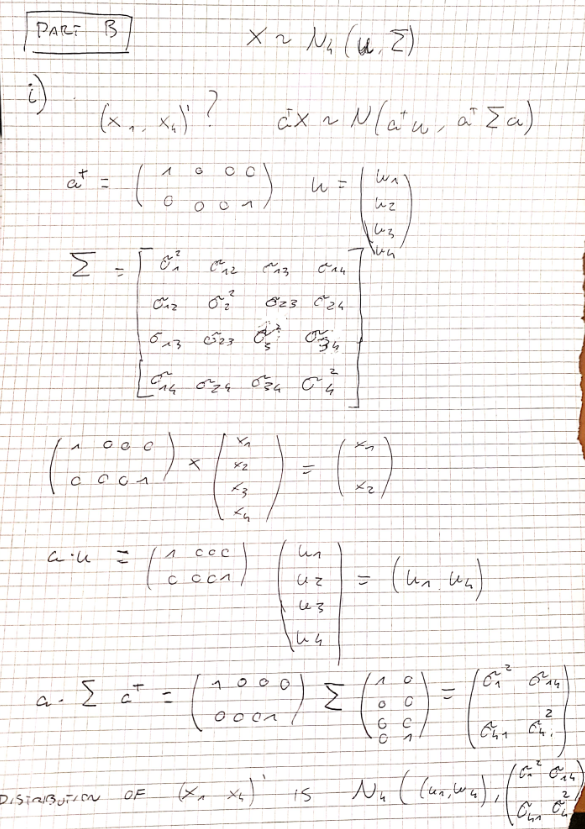 PART B
X ~ N₄ (u, Σ)
i)
(x₁, x₄)' ? a^T X ~ N(a^T u, a^T Σ a)
a^T = ( 1 0 0 0 ; 0 0 0 1 ) u = ( u₁ ; u₂ ; u₃ ; u₄ )
Σ = [ σ₁² σ₁₂ σ₁₃ σ₁₄
σ₁₂ σ₂² σ₂₃ σ₂₄
σ₁₃ σ₂₃ σ₃² σ₃₄
σ₁₄ σ₂₄ σ₃₄ σ₄² ]
( 1 0 0 0 ; 0 0 0 1 ) × ( x₁ ; x₂ ; x₃ ; x₄ ) = ( x₁ ; x₂ )
a·u = ( 1 0 0 0 ; 0 0 0 1 ) ( u₁ ; u₂ ; u₃ ; u₄ ) = (u₁ u₄)
a· Σ a^T = ( 1 0 0 0 ; 0 0 0 1 ) Σ ( 1 0 ; 0 0 ; 0 0 ; 0 1 ) = ( σ₁² σ₁₄ ; σ₄₁ σ₄² )
DISTRIBUTION OF (x₁ x₄)' IS N₄ ( (u₁, u₄), ( σ₁² σ₁₄ ; σ₄₁ σ₄² )